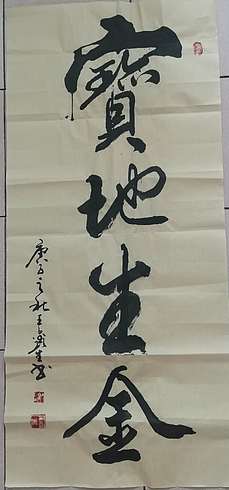 寶地生金
庚子之秋王